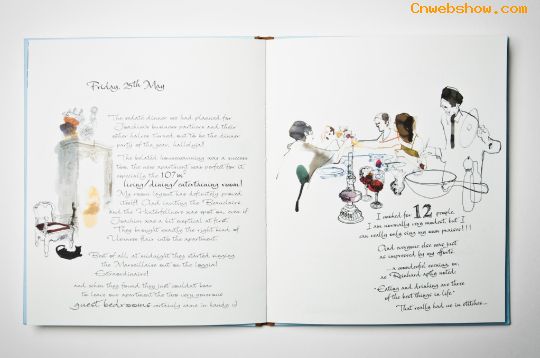 Cnwebshow.com
Friday, 25th May
The sedate dinner we had planned for
Joachim's business partners and their
other halves turned out to be the dinner
party of the year, hallelujah!
The belated housewarming was a success
too, the new apartment was perfect for it,
especially the 107m²
living/dining/entertaining room!
My room layout has definitely proved
itself! And inviting the Beauclaire
and the Hinterfellners was spot on, even if
Joachim was a bit sceptical at first.
They brought exactly the right kind of
Viennese flair into the apartment.
Best of all, at midnight they started singing
the Marseillaise out on the loggia!
Extraordinaire!
and when they found they just couldn't bear
to leave our apartment the two very generous
guest bedrooms certainly came in handy :)
I cooked for 12 people.
I am normally very modest, but I
can really only sing my own praises!!!
And everyone else was just
as impressed by my efforts.
a wonderful evening, or,
as Reinhard aptly noted:
"Eating and drinking are three
of the best things in life."
That really had us in stitches...